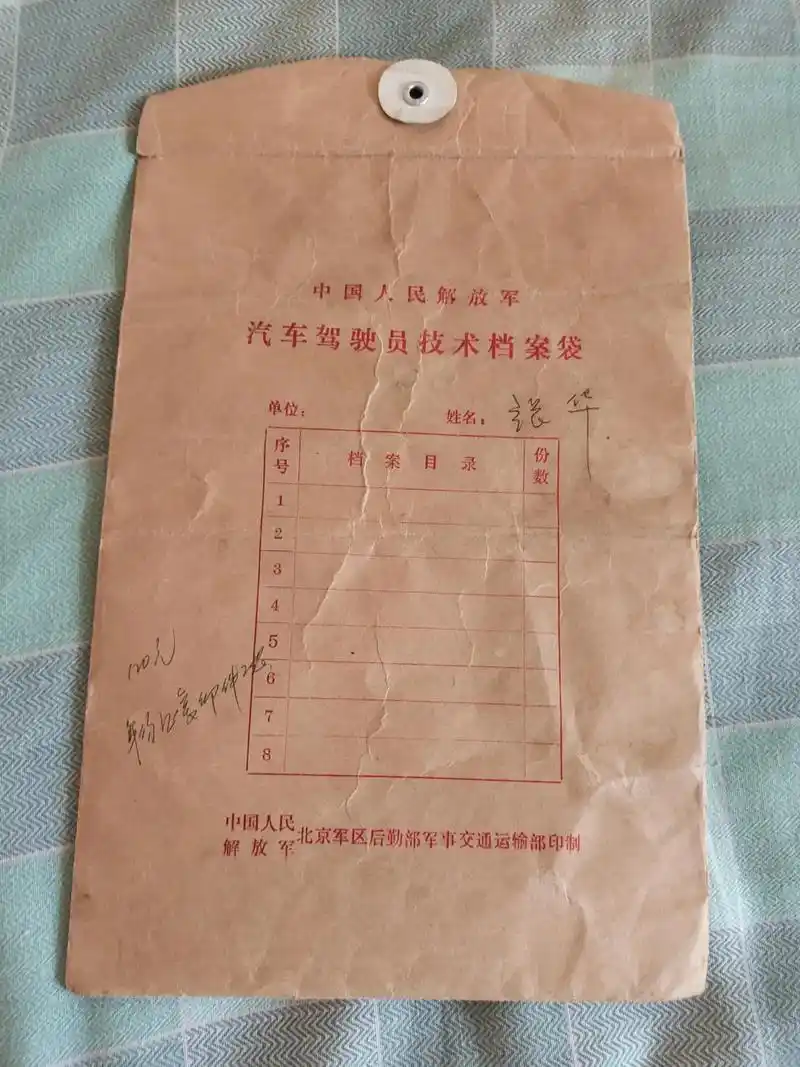 中国人民解放军
汽车驾驶员技术档案袋
单位：
姓名：张华
序号 档案目录 份数
1
2
3
4
5
6
7
8
120元
身份证复印件2张
中国人民解放军 北京军区后勤部军事交通运输部印制